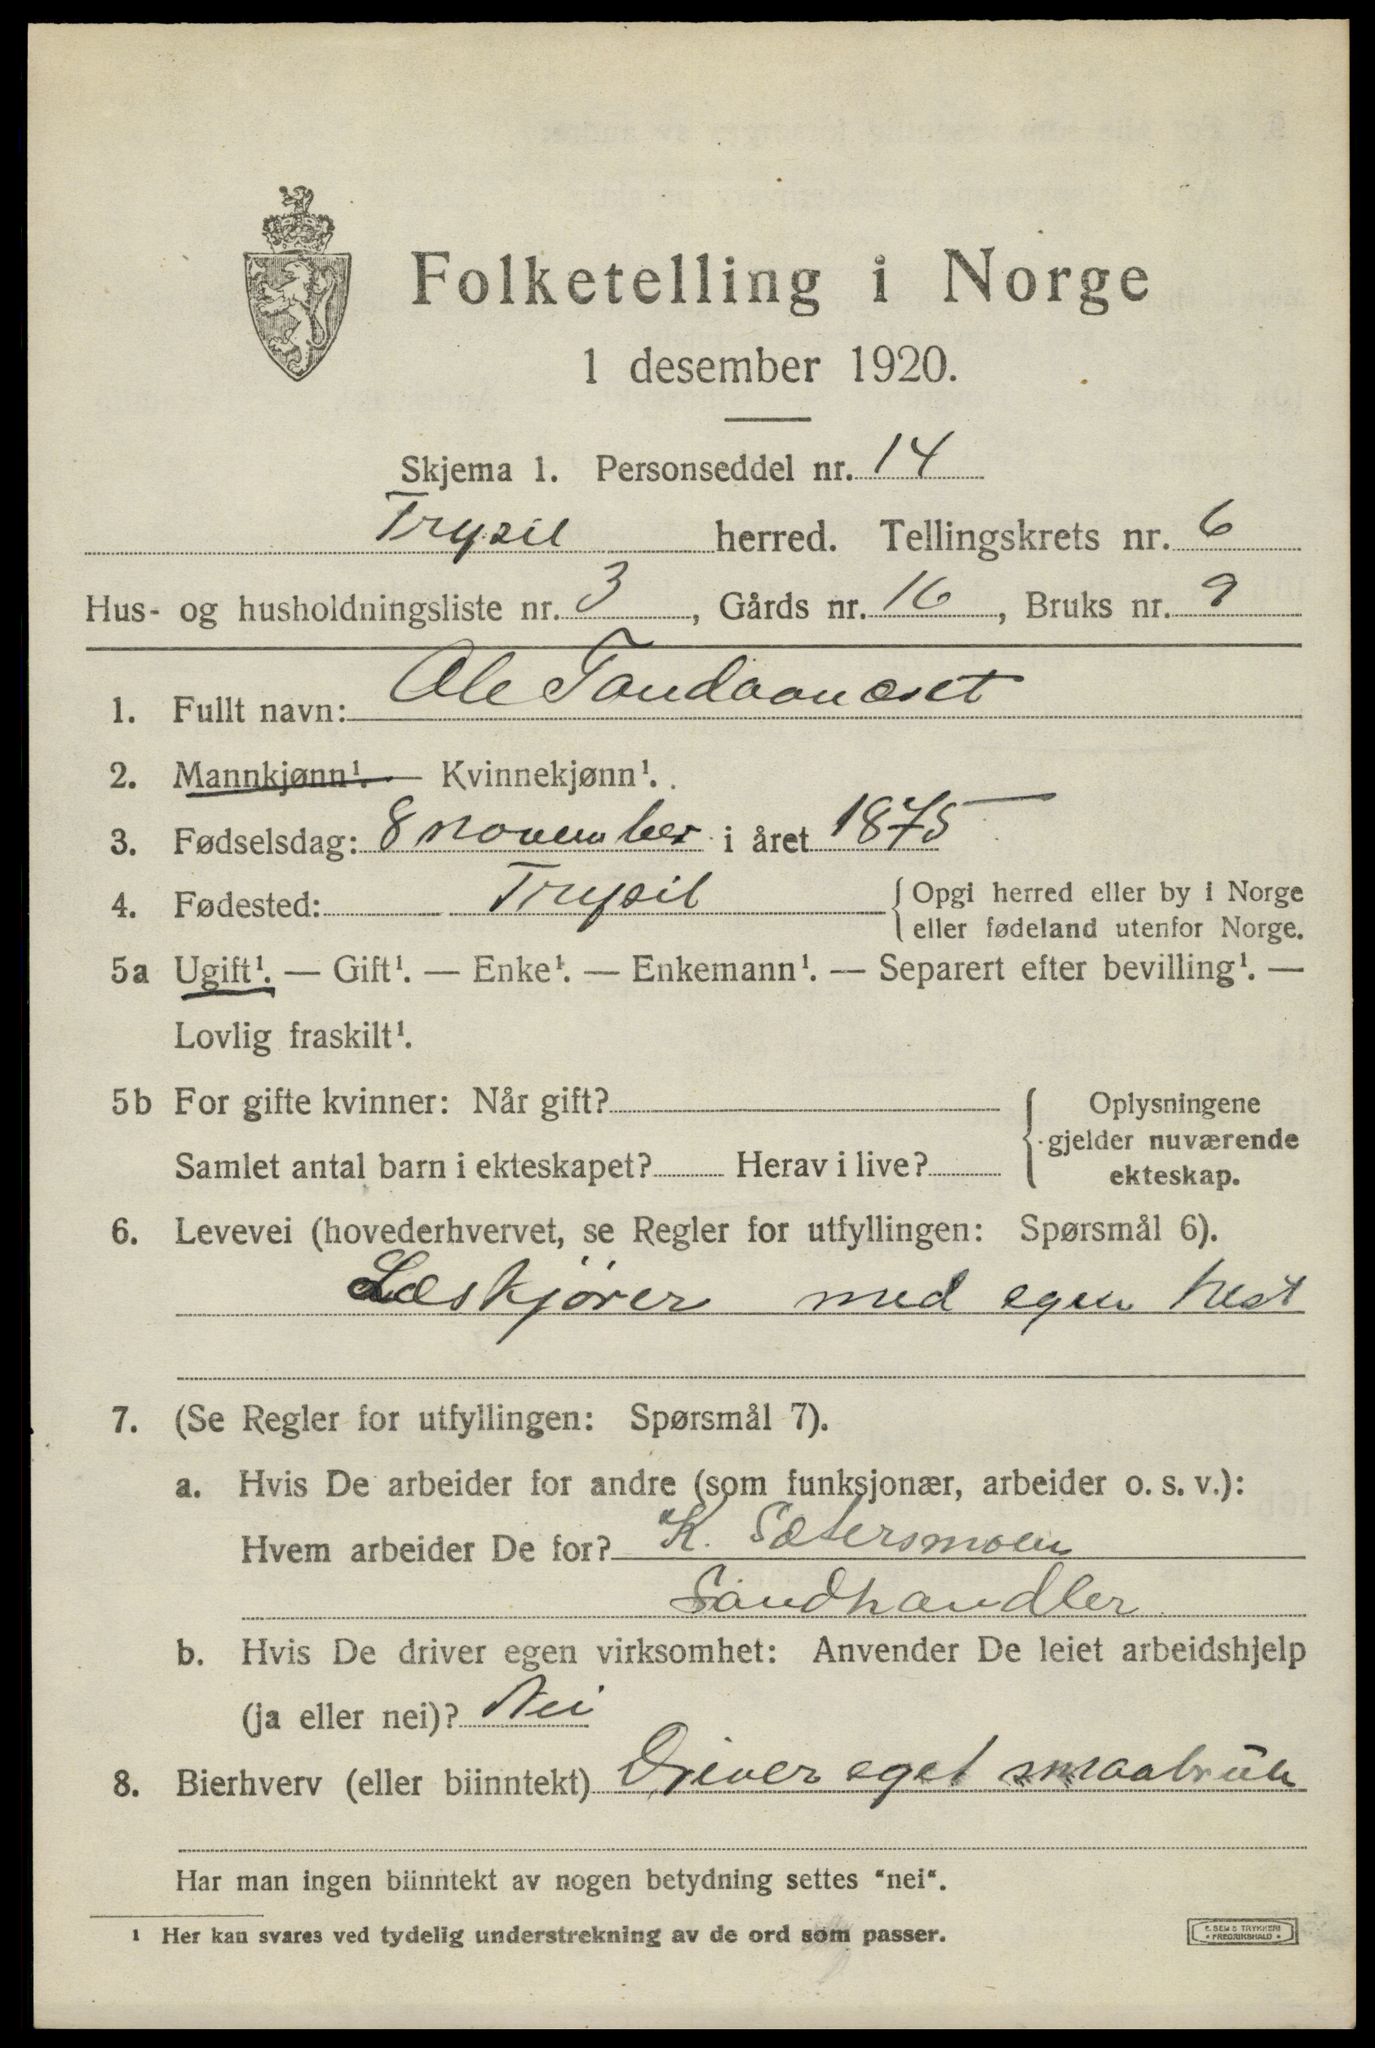 Folketelling i Norge
1 desember 1920.
Skjema 1. Personseddel nr. 14
Trysil herred. Tellingskrets nr. 6
Hus- og husholdningsliste nr. 3, Gårds nr. 16, Bruks nr. 9
1. Fullt navn: Ole Tandaanæset
2. Mannkjønn¹. — Kvinnekjønn¹.
3. Fødselsdag: 8 november i året 1875
4. Fødested: Trysil { Opgi herred eller by i Norge
eller fødeland utenfor Norge.
5a Ugift¹. — Gift¹. — Enke¹. — Enkemann¹. — Separert efter bevilling¹. —
Lovlig fraskilt¹.
5b For gifte kvinner: Når gift? { Oplysningene
gjelder nuværende
Samlet antal barn i ekteskapet? Herav i live?
ekteskap.
6. Levevei (hovederhvervet, se Regler for utfyllingen: Spørsmål 6).
Læskjører med egen hest
7. (Se Regler for utfyllingen: Spørsmål 7).
a. Hvis De arbeider for andre (som funksjonær, arbeider o. s. v.):
Hvem arbeider De for? K. Sætersmoen
Sandhandler
b. Hvis De driver egen virksomhet: Anvender De leiet arbeidshjelp
(ja eller nei)? Nei
8. Bierhverv (eller biinntekt) Driver eget smaabruk
Har man ingen biinntekt av nogen betydning settes "nei".
¹ Her kan svares ved tydelig understrekning av de ord som passer.
E. SEM'S TRYKKERI
FREDRIKSHALD